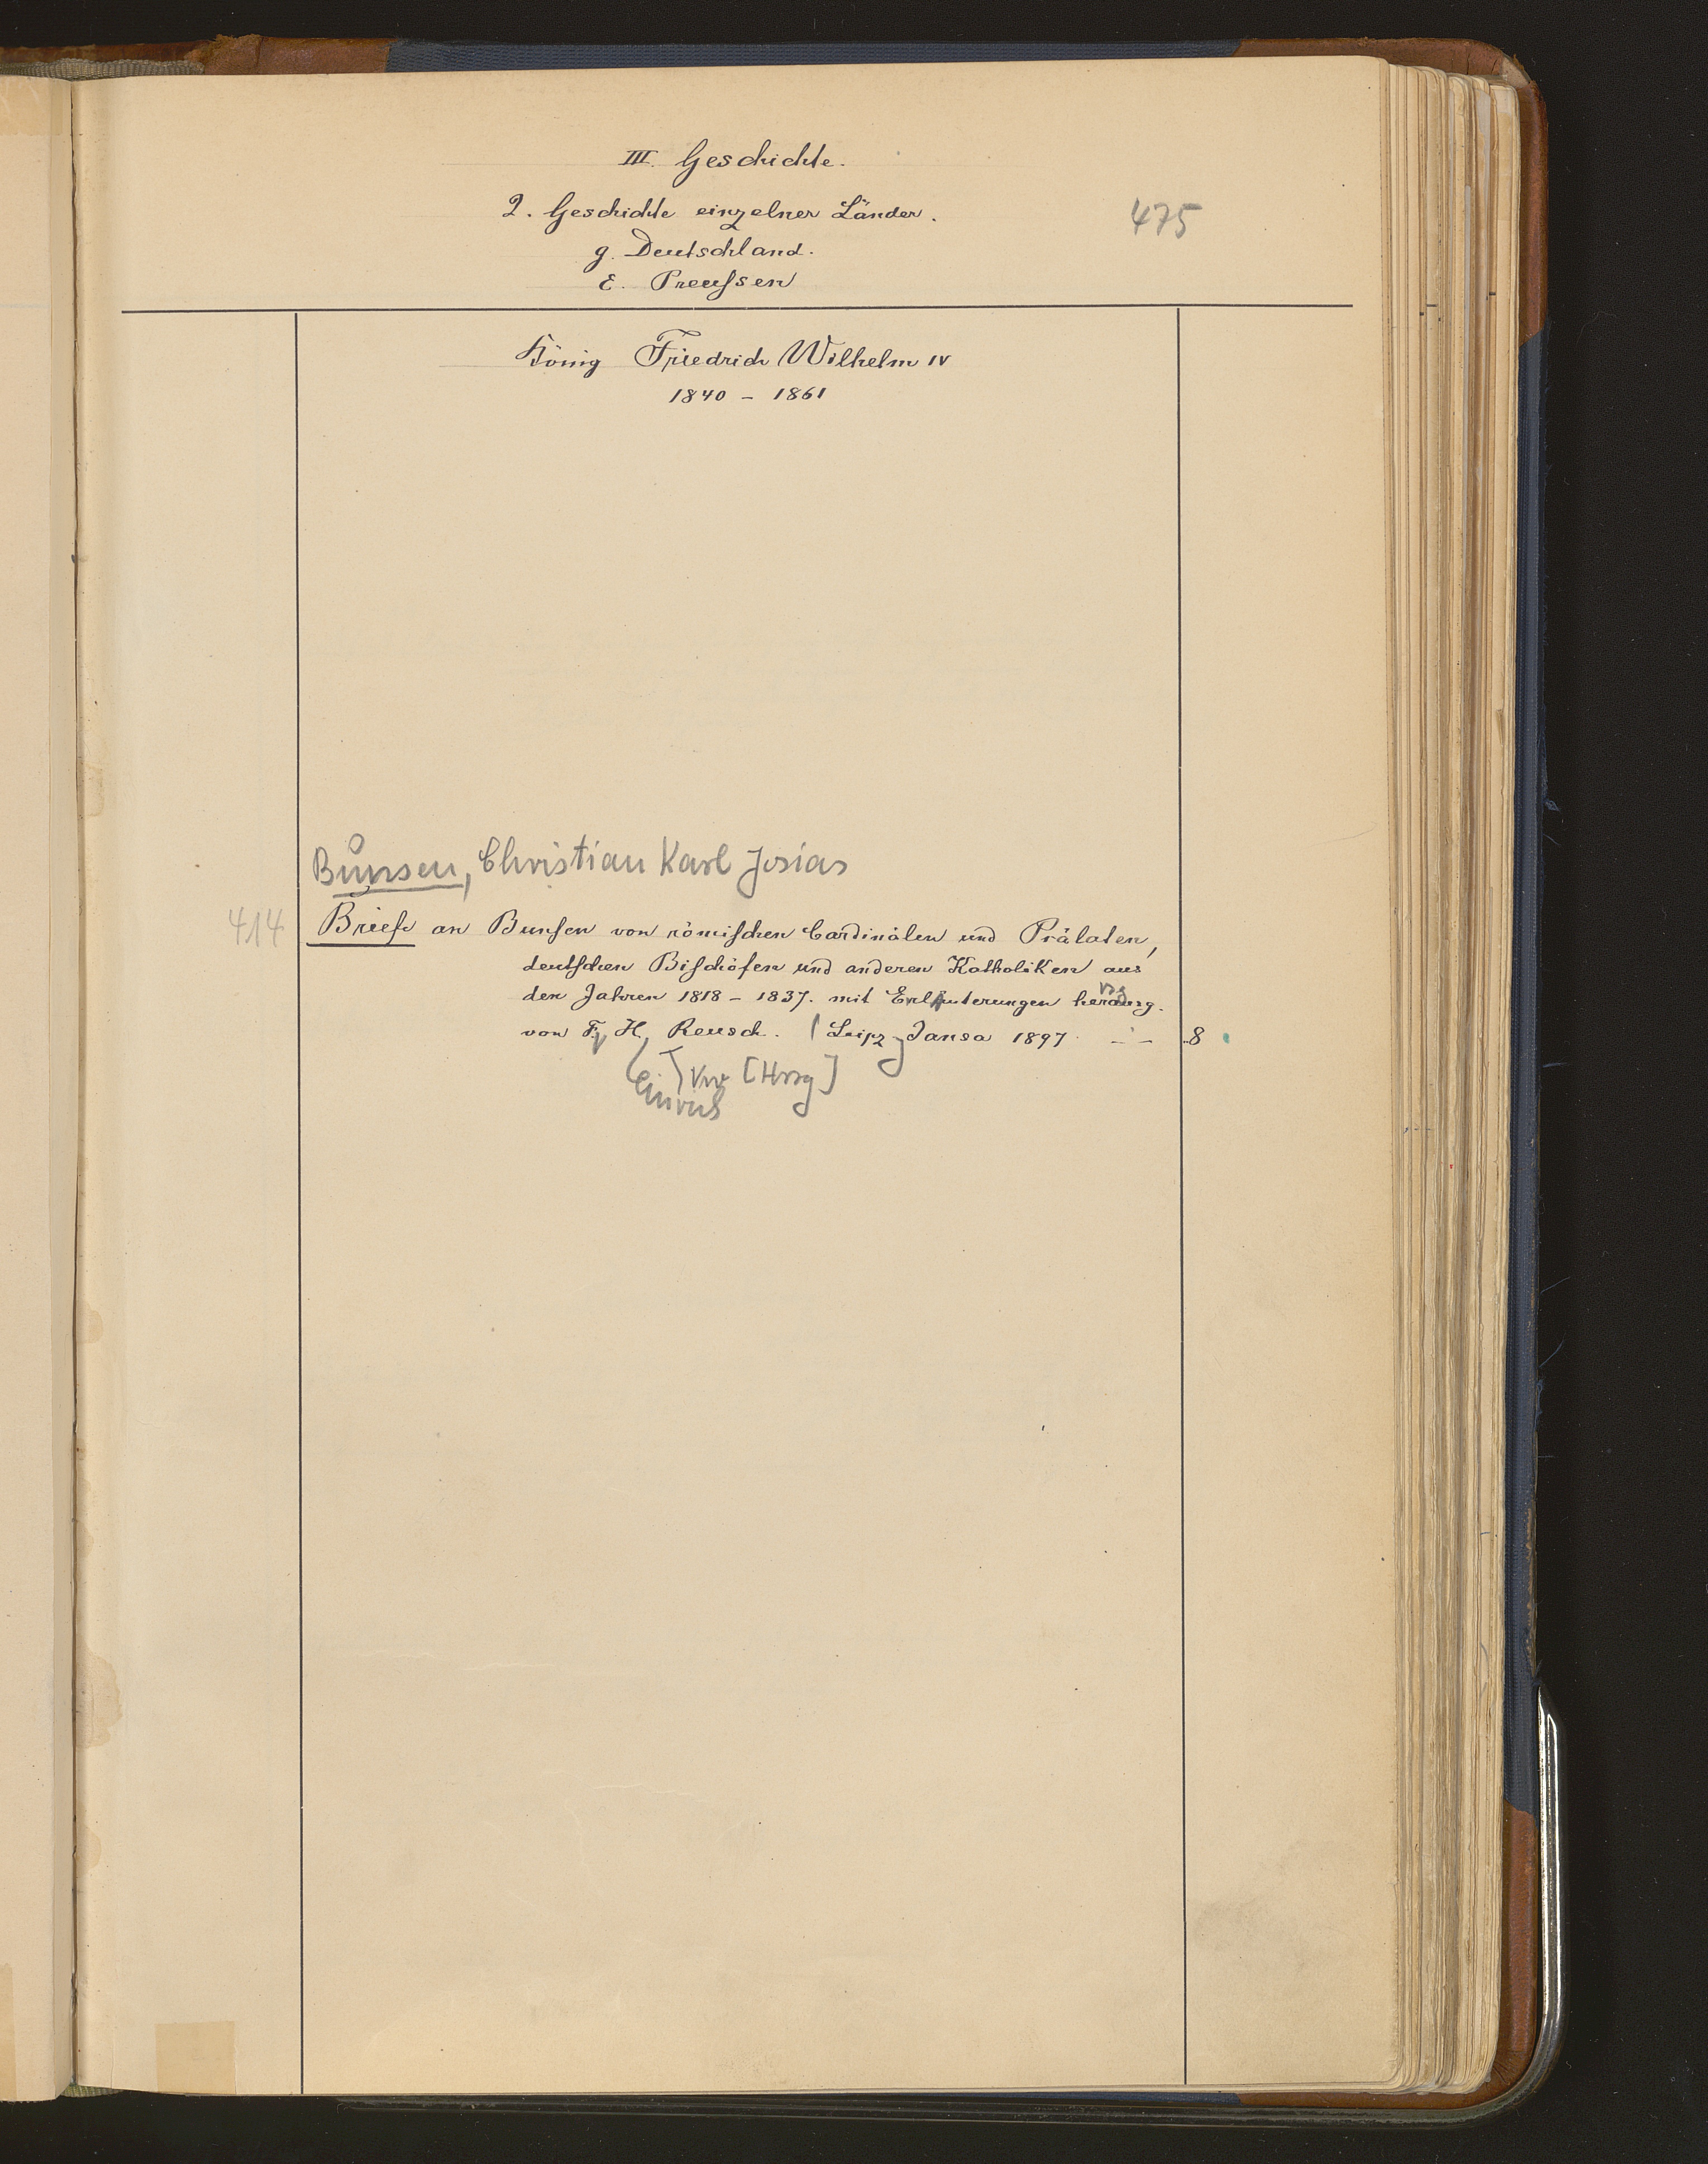 III. Geschichte.
2. Geschichte einzelner Länder.
475
g. Deutschland.
ε. Preußen
König Friedrich Wilhelm IV
1840 - 1861
Bunsen, Christian Karl Josias
414 Briefe an Bunsen von römischen Cardinälen und Prälaten,
deutschen Bischöfen und anderen Katholiken aus
den Jahren 1818 - 1837. mit Erläuterungen herausg.
von F. H. Reusch. Leipz Jansa 1897 8
[Hrsg]